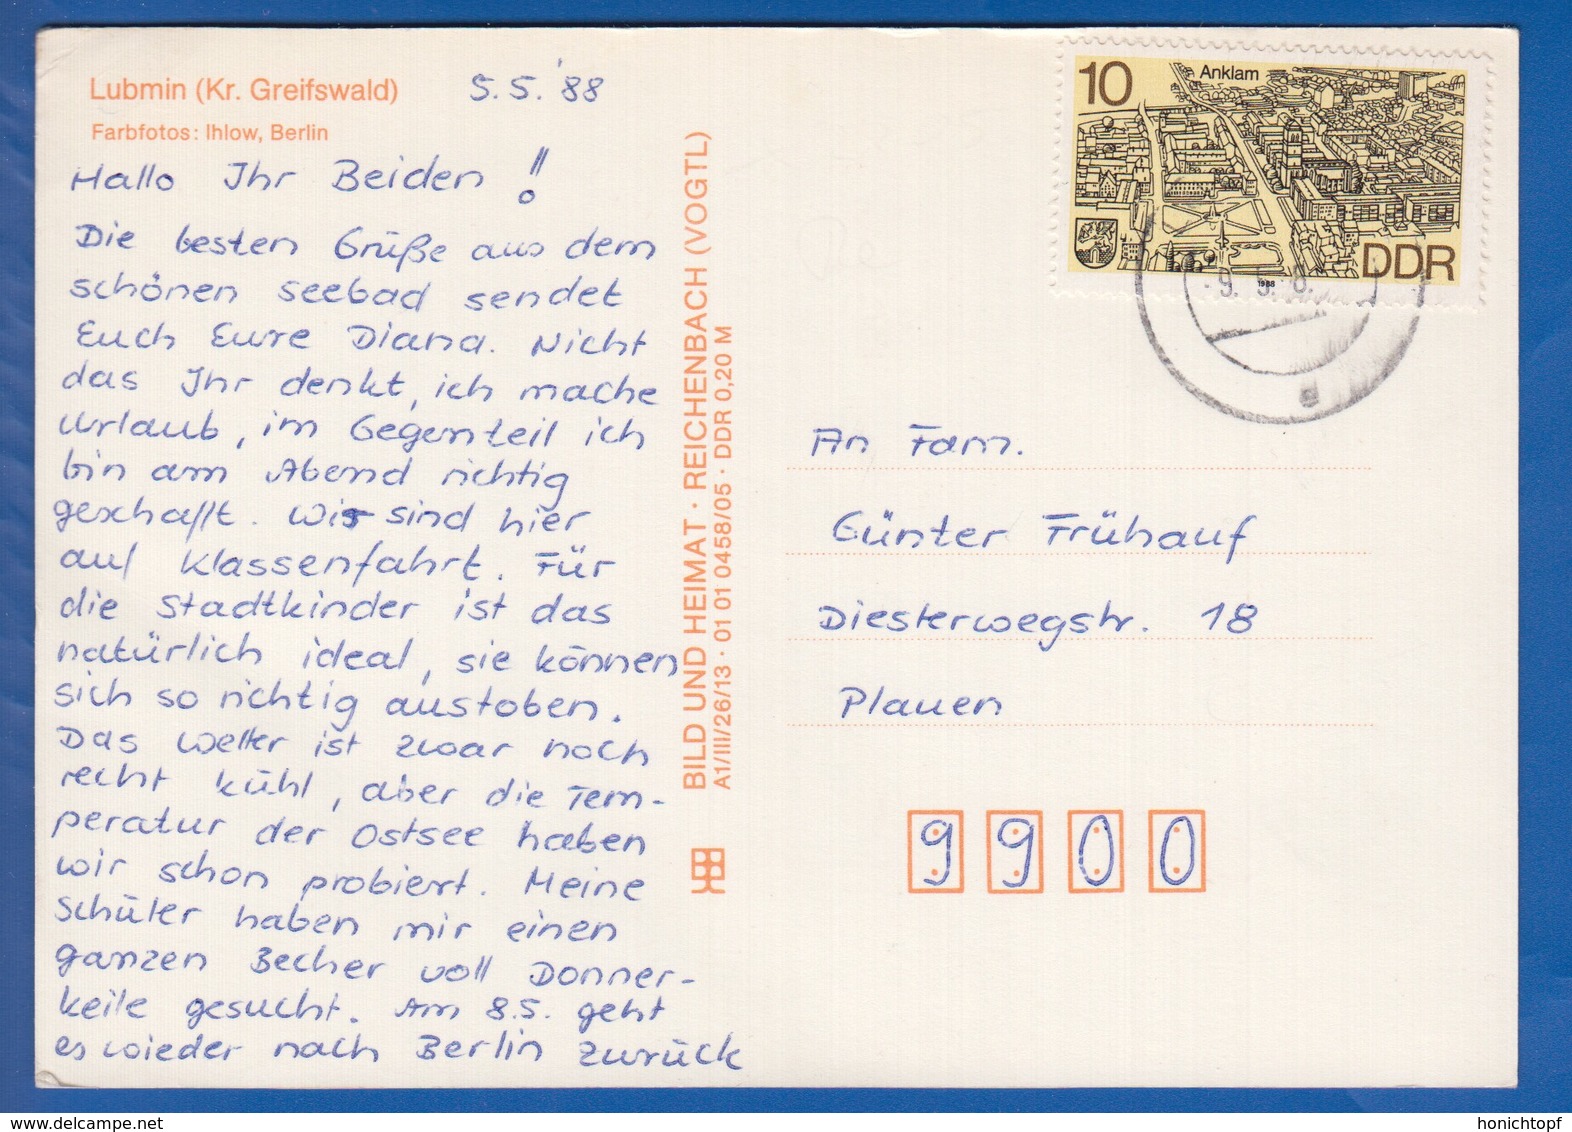 Lubmin (Kr. Greifswald)
Farbfotos: Ihlow, Berlin
5.5.'88
Hallo Ihr Beiden!!
Die besten Grüße aus dem
schönen Seebad sendet
Euch Eure Diana. Nicht
das Ihr denkt, ich mache
Urlaub, im Gegenteil ich
bin am Abend richtig
geschafft. Wir sind hier
auf Klassenfahrt. Für
die Stadtkinder ist das
natürlich ideal, sie können
sich so richtig austoben.
Das Wetter ist zwar noch
recht kühl, aber die Tem-
peratur der Ostsee haben
wir schon probiert. Meine
Schüler haben mir einen
ganzen Becher voll Donner-
keile gesucht. Am 8.5. geht
es wieder nach Berlin zurück
BILD UND HEIMAT · REICHENBACH (VOGTL)
A1/III/26/13 · 01 01 0458/05 · DDR 0,20 M
10
Anklam
DDR
1988
9.5.8.
An Fam.
Günter Frühauf
Diesterwegstr. 18
Plauen
9900
honichtopf